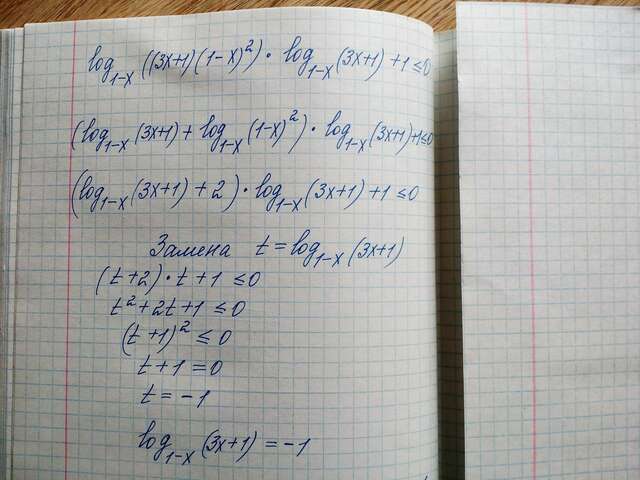 log₁₋ₓ((3x+1)(1-x)²)·log₁₋ₓ(3x+1)+1≤0
(log₁₋ₓ(3x+1)+log₁₋ₓ(1-x)²)·log₁₋ₓ(3x+1)+1≤0
(log₁₋ₓ(3x+1)+2)·log₁₋ₓ(3x+1)+1≤0
Замена t=log₁₋ₓ(3x+1)
(t+2)·t+1≤0
t²+2t+1≤0
(t+1)²≤0
t+1=0
t=-1
log₁₋ₓ(3x+1)=-1